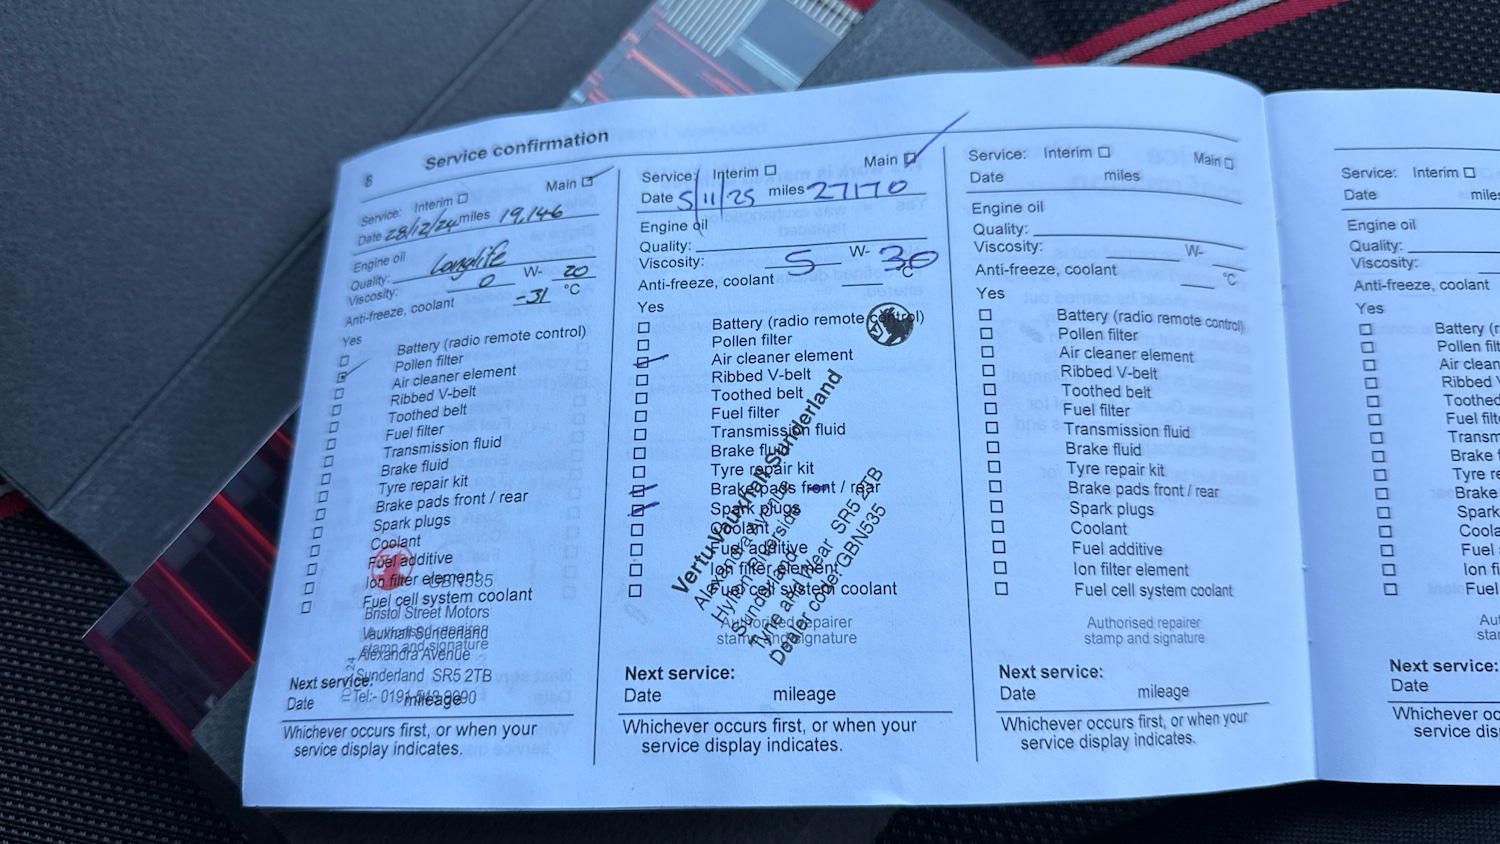 8
Service confirmation
Service: Interim Main
Date 28/12/24 miles 19,146
Engine oil
Quality: Longlife
Viscosity: 0 W- 20
Anti-freeze, coolant -31 °C
Yes
Battery (radio remote control)
Pollen filter
Air cleaner element
Ribbed V-belt
Toothed belt
Fuel filter
Transmission fluid
Brake fluid
Tyre repair kit
Brake pads front / rear
Spark plugs
Coolant
Fuel additive
Ion filter element
Fuel cell system coolant
Bristol Street Motors
Vauxhall Sunderland
Authorised repairer
stamp and signature
Alexandra Avenue
Sunderland SR5 2TB
Next service:
Date mileage
Whichever occurs first, or when your
service display indicates.
Service: Interim Main
Date 5/11/25 miles 27170
Engine oil
Quality:
Viscosity: 5 W- 30
Anti-freeze, coolant °C
Yes
Battery (radio remote control)
Pollen filter
Air cleaner element
Ribbed V-belt
Toothed belt
Fuel filter
Transmission fluid
Brake fluid
Tyre repair kit
Brake pads front / rear
Spark plugs
Coolant
Fuel additive
Ion filter element
Fuel cell system coolant
Vertu Vauxhall Sunderland
Alexandra Avenue
Hylton Riverside
Sunderland
Tyne and Wear SR5 2TB
Dealer code GBN535
Authorised repairer
stamp and signature
Next service:
Date mileage
Whichever occurs first, or when your
service display indicates.
Service: Interim Main
Date miles
Engine oil
Quality:
Viscosity: W-
Anti-freeze, coolant °C
Yes
Battery (radio remote control)
Pollen filter
Air cleaner element
Ribbed V-belt
Toothed belt
Fuel filter
Transmission fluid
Brake fluid
Tyre repair kit
Brake pads front / rear
Spark plugs
Coolant
Fuel additive
Ion filter element
Fuel cell system coolant
Authorised repairer
stamp and signature
Next service:
Date mileage
Whichever occurs first, or when your
service display indicates.
Service: Interim
Date miles
Engine oil
Quality:
Viscosity:
Anti-freeze, coolant
Yes
Battery (r
Pollen filt
Air clean
Ribbed V
Toothed
Fuel filt
Transm
Brake f
Tyre re
Brake
Spark
Coola
Fuel
Ion fi
Fuel
Au
sta
Next service:
Date
Whichever oc
service dis